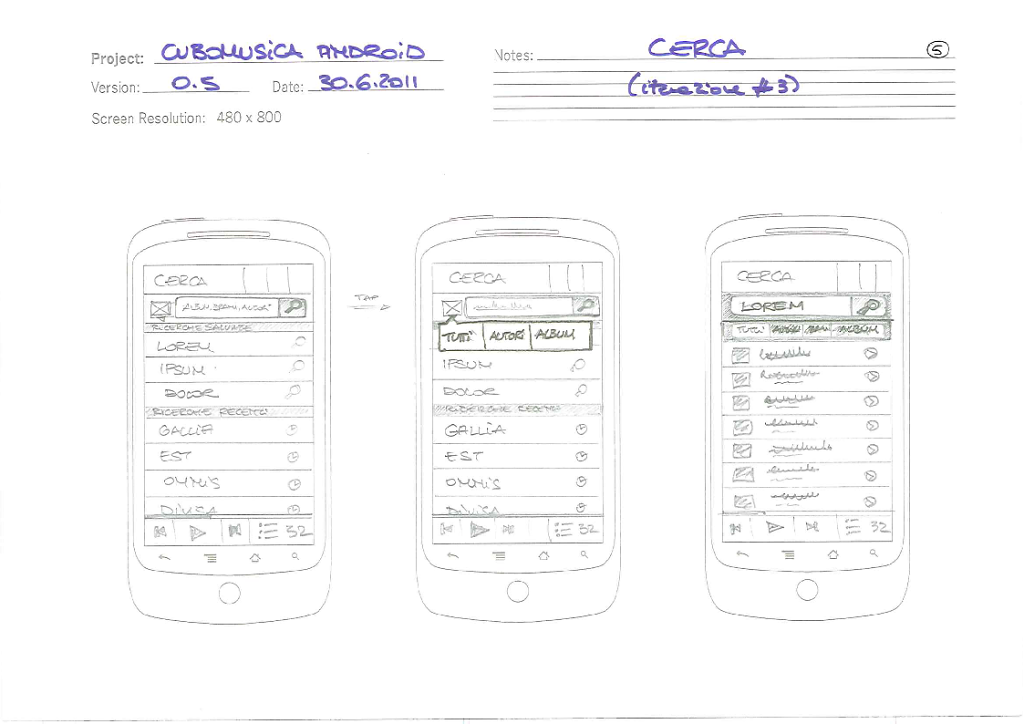 Project: CUBOMUSICA ANDROID
Version: 0.5 Date: 30.6.2011
Screen Resolution: 480 x 800
Notes: CERCA 5
(iterazione #3)
CERCA
ALBUM, BRANI, AUTORI
RICERCHE SALVATE
LOREM
IPSUM
DOLOR
RICERCHE RECENTI
GALLIA
EST
OMNIS
DIVISA
32
TAP
CERCA
TUTTI AUTORI ALBUM
IPSUM
DOLOR
RICERCHE RECENTI
GALLIA
EST
OMNIS
DIVISA
32
CERCA
LOREM
TUTTI AUTORI BRANI ALBUM
32